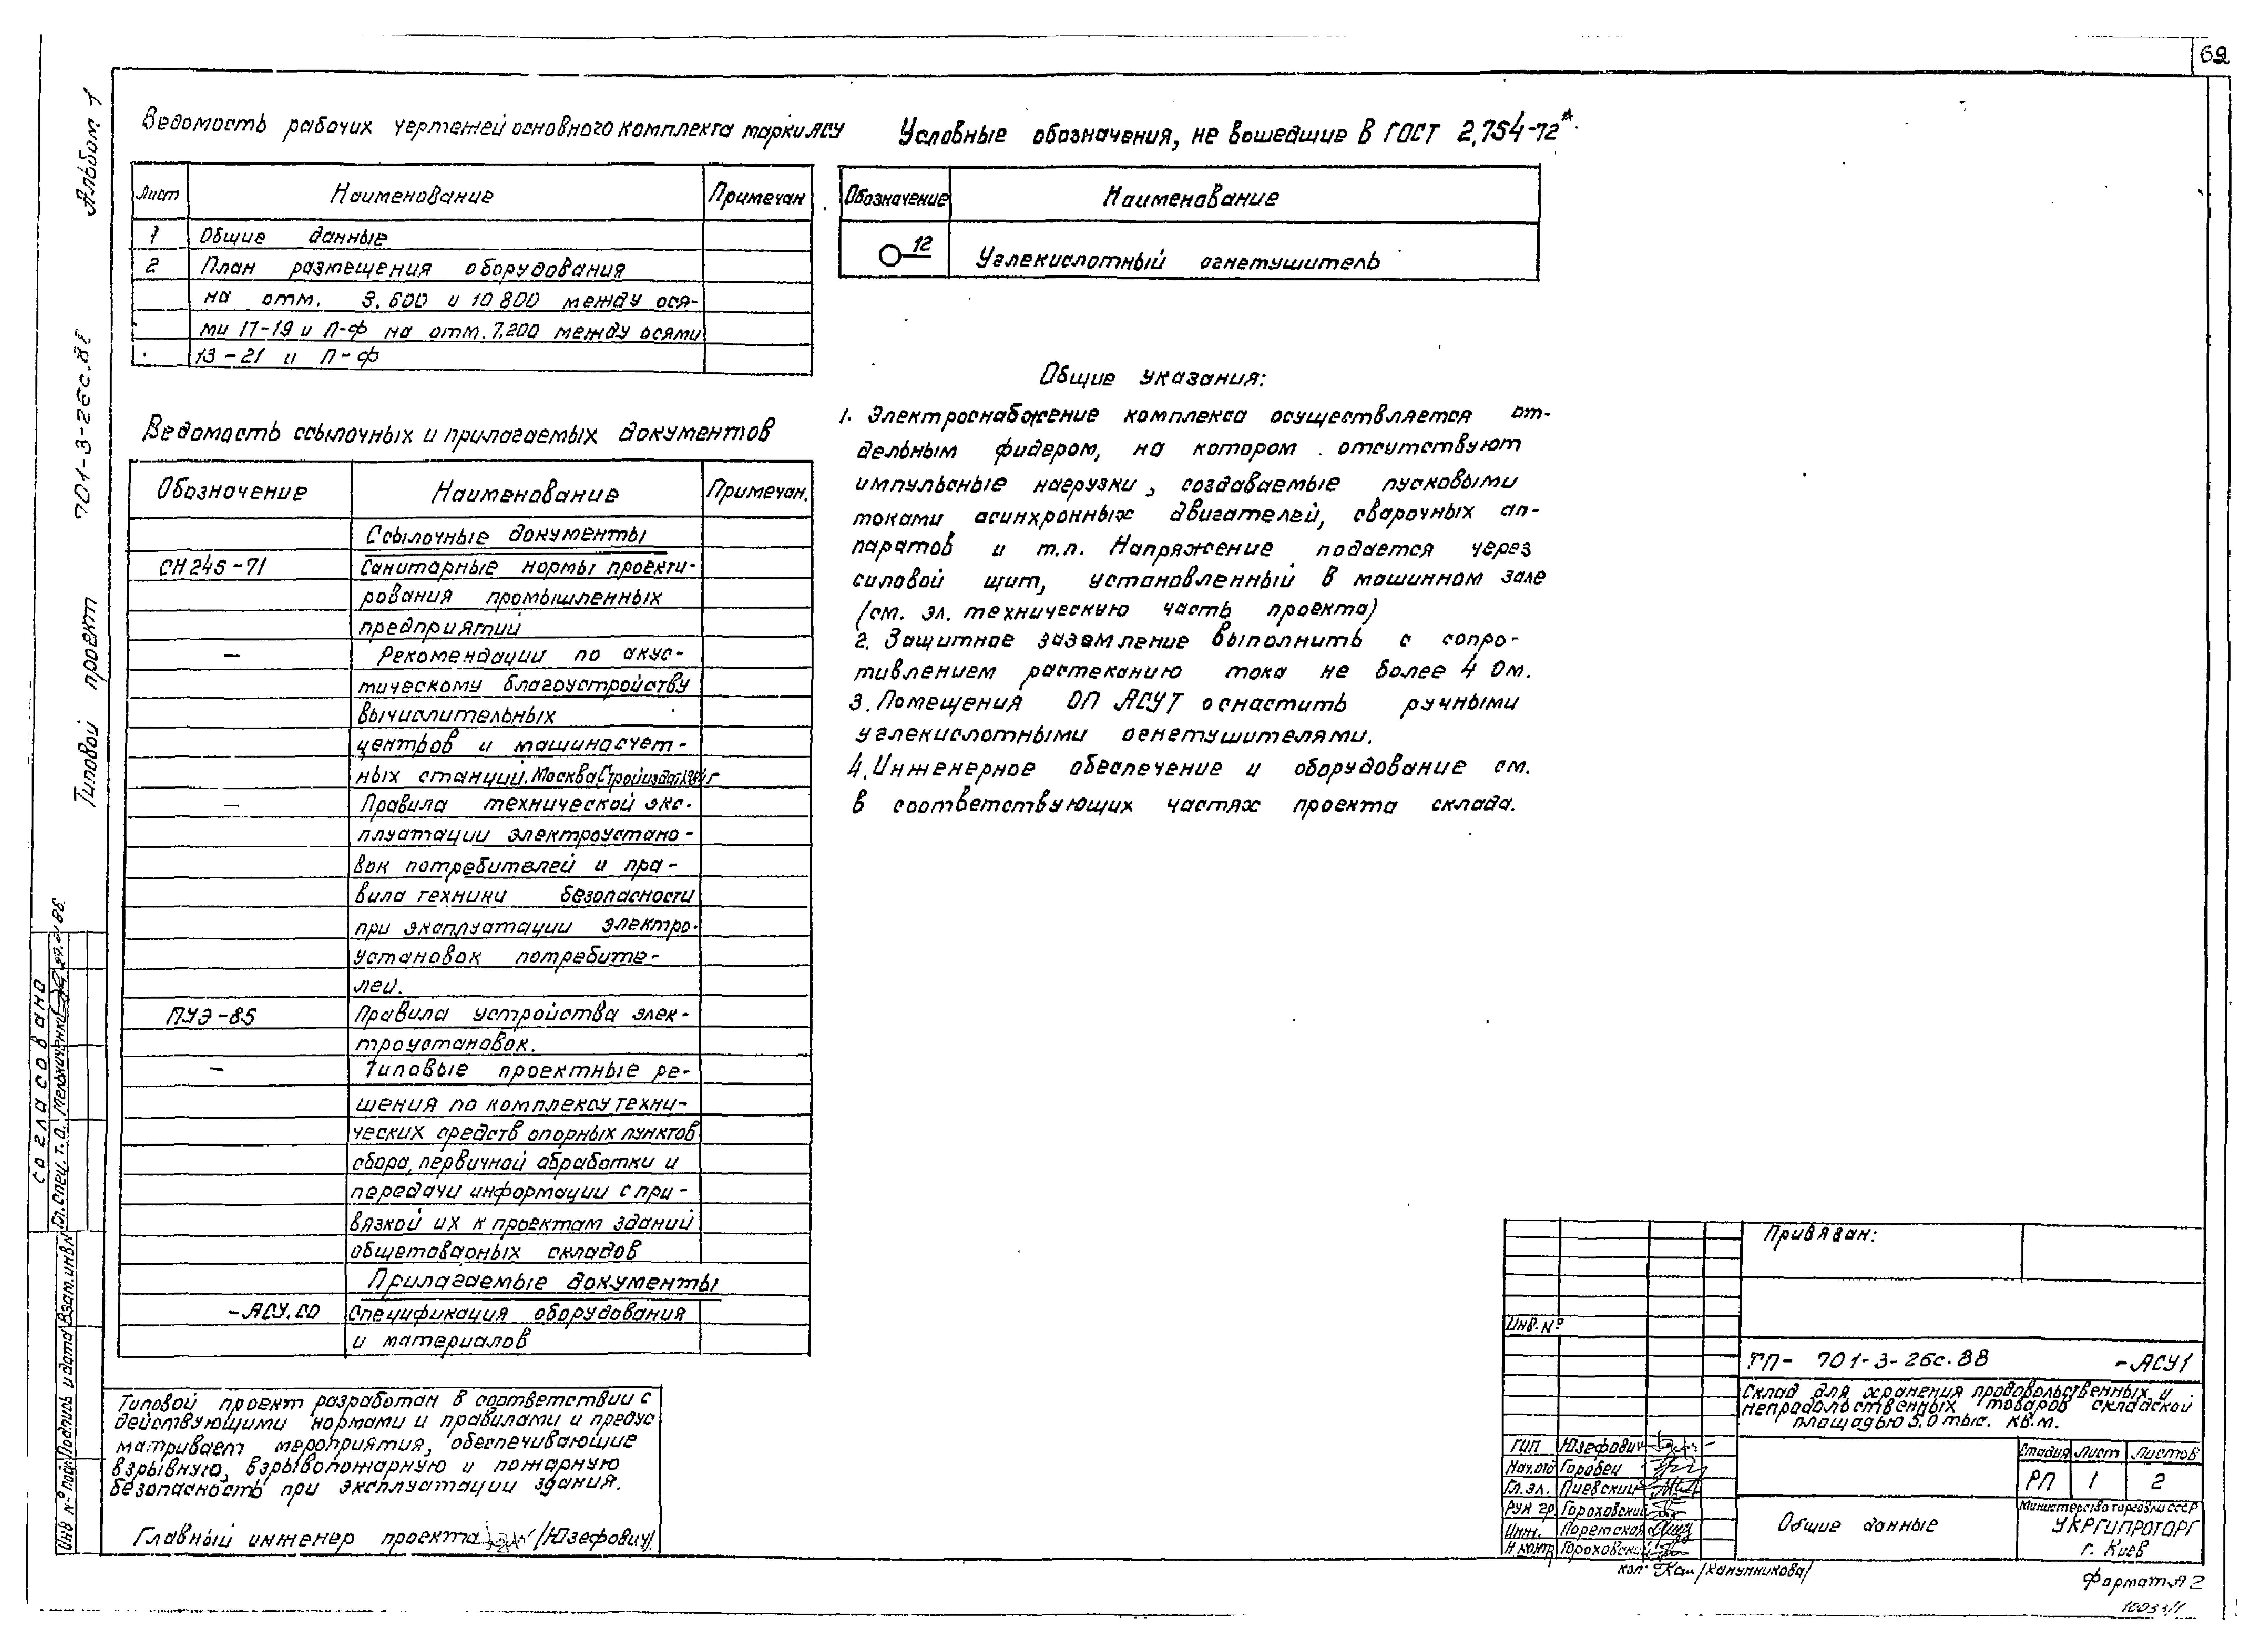 62
Альбом 1
701-3-26с.88
Типовой проект
Ведомость рабочих чертежей основного комплекта марки АСУ
Лист Наименование Примечан
1 Общие данные
2 План размещения оборудования
на отм. 3.600 и 10 800 между ося-
ми 17-19 и П-Ф на отм. 7.200 между осями
13-21 и П-Ф
Ведомость ссылочных и прилагаемых документов
Обозначение Наименование Примечан.
Ссылочные документы
СН 245-71 Санитарные нормы проекти-
рования промышленных
предприятий
- Рекомендации по акус-
тическому благоустройству
вычислительных
центров и машиносчет-
ных станций. Москва, Стройиздат
- Правила технической экс-
плуатации электроустано-
вок потребителей и пра-
вила техники безопасности
при эксплуатации электро-
установок потребите-
лей.
ПУЭ-85 Правила устройства элек-
троустановок.
- Типовые проектные ре-
шения по комплексу техни-
ческих средств опорных пунктов
сбора, первичной обработки и
передачи информации с при-
вязкой их к проектам зданий
общетоварных складов
Прилагаемые документы
-АСУ.СО Спецификация оборудования
и материалов
Типовой проект разработан в соответствии с
действующими нормами и правилами и предус
матривает мероприятия, обеспечивающие
взрывную, взрывопожарную и пожарную
безопасность при эксплуатации здания.
Главный инженер проекта /Юзефович/
Условные обозначения, не вошедшие в ГОСТ 2.754-72*
Обозначение Наименование
12 Углекислотный огнетушитель
Общие указания:
1. Электроснабжение комплекса осуществляется от-
дельным фидером, на котором отсутствуют
импульсные нагрузки, создаваемые пусковыми
токами асинхронных двигателей, сварочных ап-
паратов и т.п. Напряжение подается через
силовой щит, установленный в машинном зале
(см. эл. техническую часть проекта)
2. Защитное заземление выполнить с сопро-
тивлением растеканию тока не более 4 Ом.
3. Помещения ОП АСУТ оснастить ручными
углекислотными огнетушителями.
4. Инженерное обеспечение и оборудование см.
в соответствующих частях проекта склада.
согласовано
Гл. спец. т.о. Мельниченко
Взам. инв №
Подпись и дата
Инв № подл
Привязан:
Инв. №
ТП- 701-3-26с.88 -АСУ1
Склад для хранения продовольственных и
непродольственных товаров складской
площадью 5.0 тыс. кв.м.
ГИП Юзефович
Нач.отд Горобец
Гл. эл. Пиевский
Рук гр. Гороховский
Инж. Поретская
Н контр Гороховский
Стадия Лист Листов
РП 1 2
Общие данные
Министерство торговли СССР
УКРГИПРОТОРГ
г. Киев
коп. /Ханунникова/
Формат А2